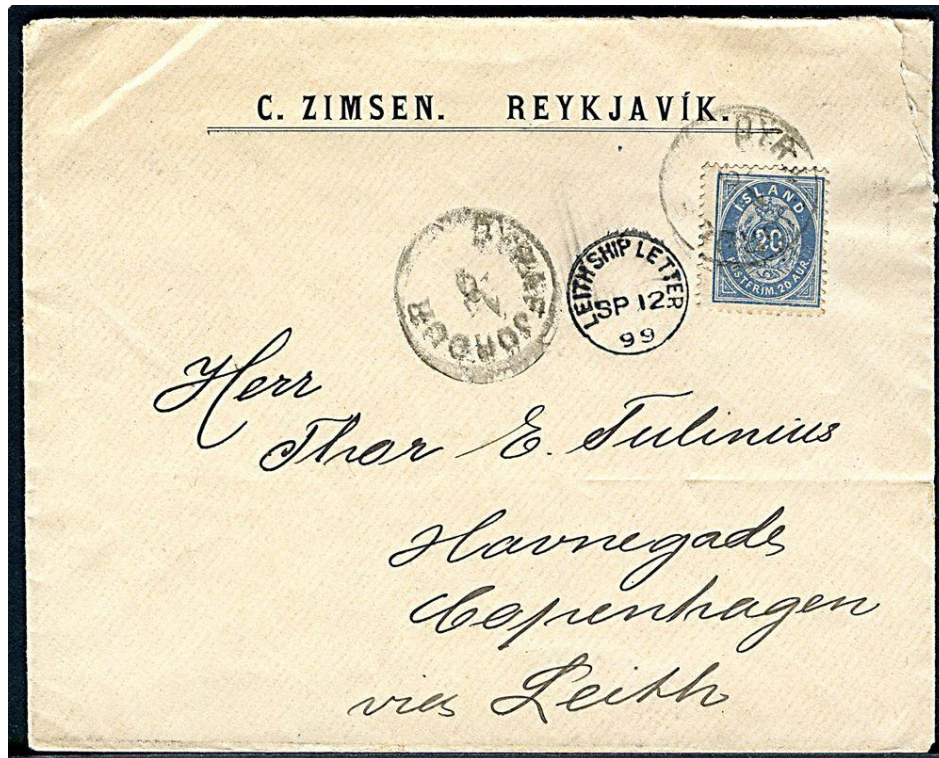 C. ZIMSEN. REYKJAVÍK.
DYR
ISLAND
20
PÓSTFRIM. 20 AUR.
DYRAFJORDUR
LEITH SHIP LETTER
SP 12
99
Herr
Thor E. Tulinius
Havnegade
Copenhagen
via Leith